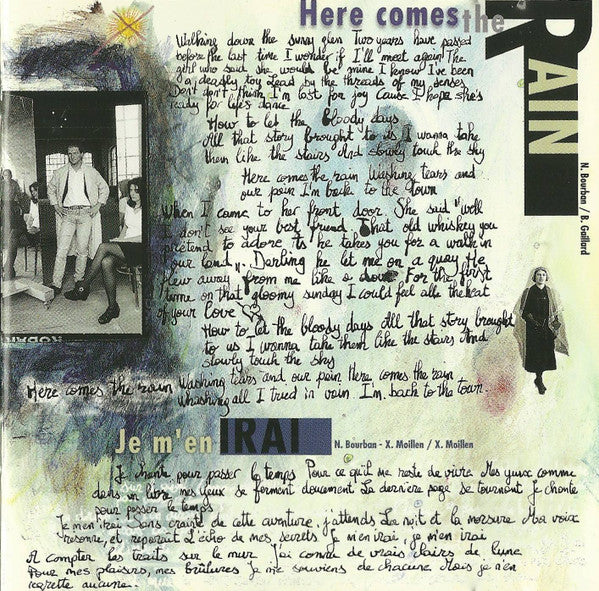 Here comes the
RAIN
N. Bourban / B. Gaillard
Walking down the sunny glen Two years have passed
before the last time I wonder if I'll meet again The
girl who said she would be mine I know I've been
a deadly toy Lead by the threads of my senses
Don't don't think I'm lost for joy Cause I hope she's
ready for life's dance
How to let the bloody days
All that story brought to us I wanna take
them like the stairs And slowly touch the sky
Here comes the rain Washing tears and
our pain I'm back to the town
When I came to her front door. She said "well
I don't see your best friend. That old whiskey you
pretend to adore its he takes you for a walk in
your land". Darling he let me on a quay He
flew away from me like a dove For the first
time on that gloomy sunday I could feel alle the heat
of your love
How to let the bloody days All that story brought
to us I wanna take them like the stairs And
slowly touch the sky
Here comes the rain Washing tears and our pain Here comes the rain
Whashing all I tried in vain I'm back to the town.
KODAK
Je m'en IRAI
N. Bourban - X. Moillen / X. Moillen
Je chante pour passer le temps Pour ce qu'il me reste de vivre Mes yeux comme
dans un livre Mes yeux se ferment doucement La dernière page se tournant Je chante
pour passer le temps
Je m'en irai Sans crainte de cette aventure, j'attends La nuit et la morsure Ma voix
résonne, et repartait L'écho de mes secrets Je m'en irai, je m'en irai
A compter les traits sur le mur J'ai connu de vrais clairs de lune
Pour mes plaisirs, mes brûlures Je me souviens de chacune Mais je n'en
regrette aucune..